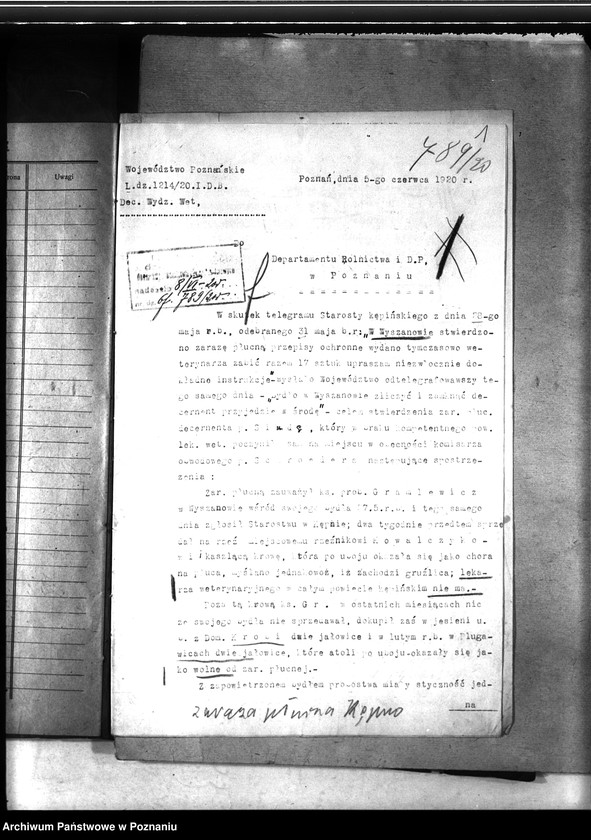 Uwagi
789/20
1
Województwo Poznańskie
L.dz.1214/20.I.D.B.
Dec. Wydz. Wet,
Poznań,dnia 5-go czerwca 1920 r.
Do
Departamentu Rolnictwa i D.P,
w Poznaniu
nadeszło 8/VI-20r.
789/20r.
W skutek telegramu Starosty kępińskiego z dnia 28-go
maja r.b., odebranego 31 maja b.r: "W Wyszanowie stwierdzo-
no zarazę płucną przepisy ochronne wydano tymczasowo we-
terynarza zabić razem 17 sztuk upraszam niezwłocznie do-
kładne instrukcje" wysłało Województwo odtelegrafowawszy te-
go samego dnia - "bydło w Wyszanowie zliczyć i zamknąć de-
cernent przyjedzie w środę" - celem stwierdzenia zar. płuc.
decernenta p. , który w braku kompetentnego pow.
lek. wet. poczynił sam na miejscu w obecności komisarza
obwodowego p. następujące spostrze-
żenia :
Zar. płucną zauważył ks. prob. G r a m l e w i c z
w Wyszanowie wśród swojego bydła 27.5.r.b. i tego samego
dnia zgłosił Starostwu w Kępnie; dwa tygodnie przedtem sprze
dał na rzeź miejscowemu rzeźnikowi K o w a l c z y k o -
w i kaszlącą krowę, która po uboju okazała się jako chora
na płuca, myślano jednakowoż, iż zachodzi gruźlica; leka-
rza weterynaryjnego w całym powiecie kępińskim nie ma.-
Poza tą krową ks. Gr. w ostatnich miesiącach nic
ze swojego bydła nie sprzedawał, dokupił zaś w jesieni u.
r. z Dom. dwie jałowice i w lutym r.b. w Sługa-
wicach dwie jałowice, które atoli po uboju okazały się ja-
ko wolne od zar. płucnej.-
Z zapowietrzonem bydłem probostwa miały styczność jed-
na
zaraza płucna Kępno
Archiwum Państwowe w Poznaniu